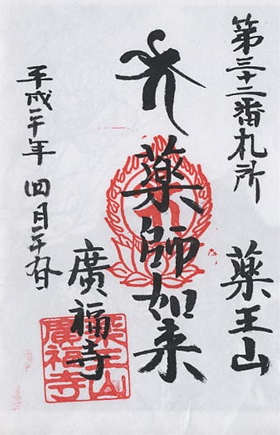 第三十二番札所
薬王山
薬師如来
廣福寺
平成二十年 四月
薬王山
廣福寺